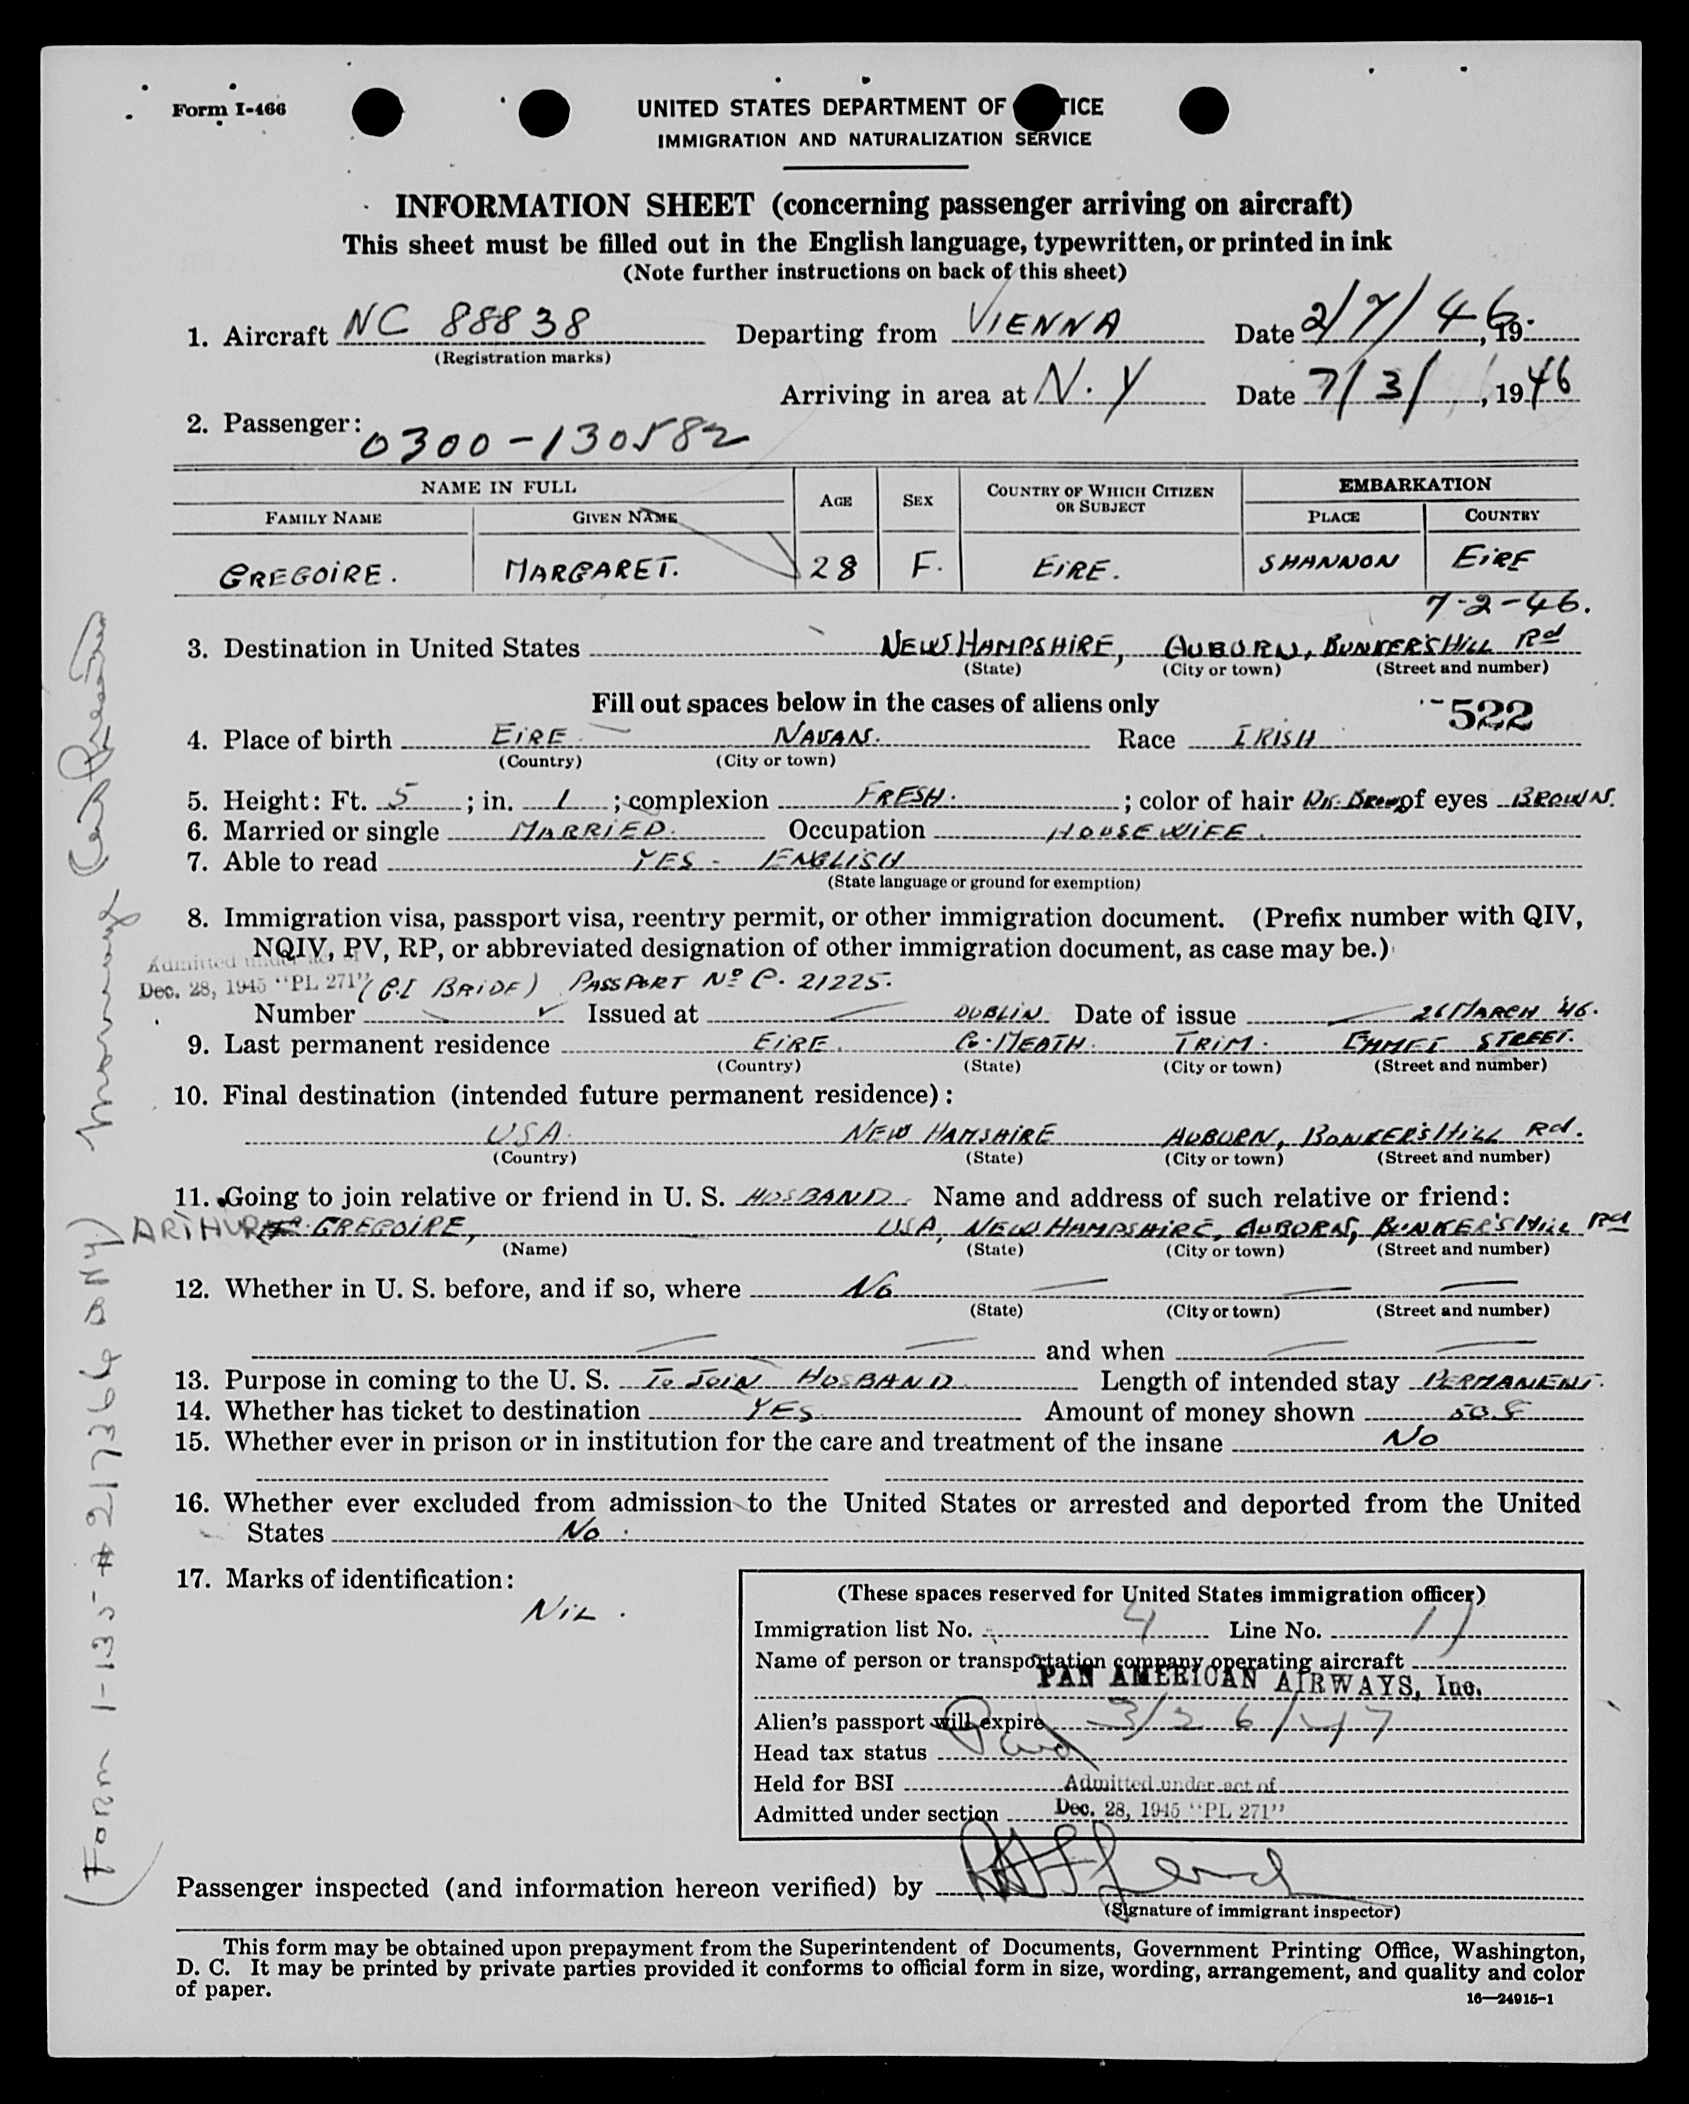 Form I-466
UNITED STATES DEPARTMENT OF TICE
IMMIGRATION AND NATURALIZATION SERVICE
INFORMATION SHEET (concerning passenger arriving on aircraft)
This sheet must be filled out in the English language, typewritten, or printed in ink
(Note further instructions on back of this sheet)
1. Aircraft NC 88838 Departing from VIENNA Date 2/7/46, 19
(Registration marks)
Arriving in area at N.Y Date 7/3/, 1946
2. Passenger: 0300-130582
NAME IN FULL AGE SEX COUNTRY OF WHICH CITIZEN OR SUBJECT EMBARKATION
FAMILY NAME GIVEN NAME PLACE COUNTRY
GREGOIRE. MARGARET. 28 F. EIRE. SHANNON EIRE
7-2-46.
3. Destination in United States NEW HAMPSHIRE, AUBURN, BUNKER'S HILL Rd
(State) (City or town) (Street and number)
Fill out spaces below in the cases of aliens only
522
4. Place of birth EIRE NAVAN. Race IRISH
(Country) (City or town)
5. Height: Ft. 5 ; in. 1 ; complexion FRESH. ; color of hair DK. BROWN of eyes BROWN.
6. Married or single MARRIED. Occupation HOUSEWIFE.
7. Able to read YES - ENGLISH
(State language or ground for exemption)
8. Immigration visa, passport visa, reentry permit, or other immigration document. (Prefix number with QIV,
NQIV, PV, RP, or abbreviated designation of other immigration document, as case may be.)
Admitted under act of
Dec. 28, 1945 "PL 271" (G.I BRIDE) PASSPORT No C. 21225.
Number Issued at DUBLIN Date of issue 26 MARCH '46.
9. Last permanent residence EIRE. Co. MEATH. TRIM. EMMET STREET.
(Country) (State) (City or town) (Street and number)
10. Final destination (intended future permanent residence):
USA. NEW HAMSHIRE AUBURN, BUNKER'S HILL Rd.
(Country) (State) (City or town) (Street and number)
11. Going to join relative or friend in U. S. HUSBAND. Name and address of such relative or friend:
ARTHUR GREGOIRE, USA, NEW HAMPSHIRE, AUBURN, BUNKER'S HILL Rd
(Name) (State) (City or town) (Street and number)
12. Whether in U. S. before, and if so, where No
(State) (City or town) (Street and number)
and when
13. Purpose in coming to the U. S. To JOIN HUSBAND Length of intended stay PERMANENT.
14. Whether has ticket to destination YES Amount of money shown
15. Whether ever in prison or in institution for the care and treatment of the insane No
16. Whether ever excluded from admission to the United States or arrested and deported from the United
States No.
17. Marks of identification:
NIL.
(These spaces reserved for United States immigration officer)
Immigration list No. 4 Line No.
Name of person or transportation company operating aircraft
PAN AMERICAN AIRWAYS, Inc.
Alien's passport will expire 3/26/47
Head tax status Paid
Held for BSI
Admitted under act of
Admitted under section Dec. 28, 1945 "PL 271"
Passenger inspected (and information hereon verified) by
(Signature of immigrant inspector)
This form may be obtained upon prepayment from the Superintendent of Documents, Government Printing Office, Washington,
D. C. It may be printed by private parties provided it conforms to official form in size, wording, arrangement, and quality and color
of paper.
16—24915-1
(Form I-135 # 217366 BNY)